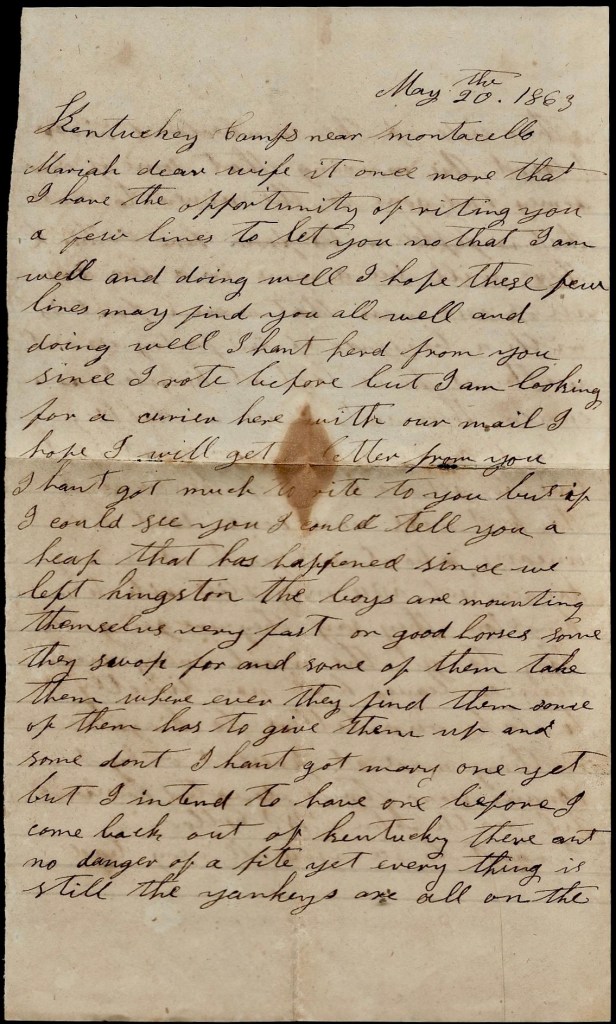 May the 20. 1863
Kentucky Camps near montacello
Mariah dear wife it once more that
I have the opportunity of riting you
a few lines to let you no that I am
well and doing well I hope these few
lines may find you all well and
doing well I hant herd from you
since I rote before but I am looking
for a curier here with our mail I
hope I will get letter from you
I hant got much to rite to you but if
I could see you I could tell you a
heap that has happened since we
left kingston the boys are mounting
themselvs very fast on good horses some
they swop for and some of them take
them where ever they find them some
of them has to give them up and
some dont I hant got mary one yet
but I intend to have one before I
come back out of kentucky there ant
no danger of a fite yet every thing is
still the yankeys are all on the